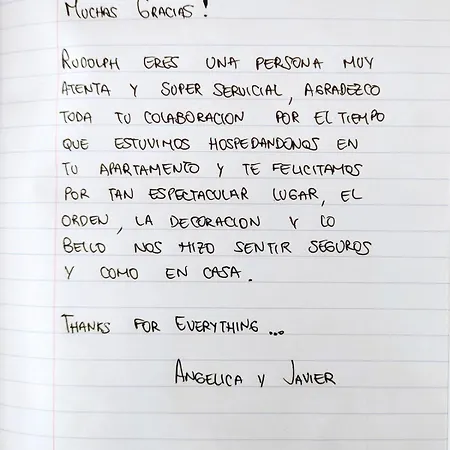 MUCHAS GRACIAS!
RUDOLPH ERES UNA PERSONA MUY
ATENTA Y SUPER SERVICIAL, AGRADEZCO
TODA TU COLABORACION POR EL TIEMPO
QUE ESTUVIMOS HOSPEDANDONOS EN
TU APARTAMENTO Y TE FELICITAMOS
POR TAN ESPECTACULAR LUGAR, EL
ORDEN, LA DECORACION Y LO
BELLO NOS HIZO SENTIR SEGUROS
Y COMO EN CASA.
THANKS FOR EVERYTHING...
ANGELICA Y JAVIER